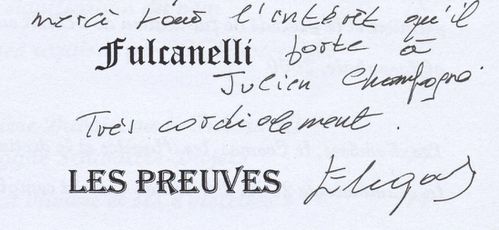 merci pour l'intérêt qu'il
Fulcanelli porte à
Julien Champagne.
Très cordialement.
LES PREUVES